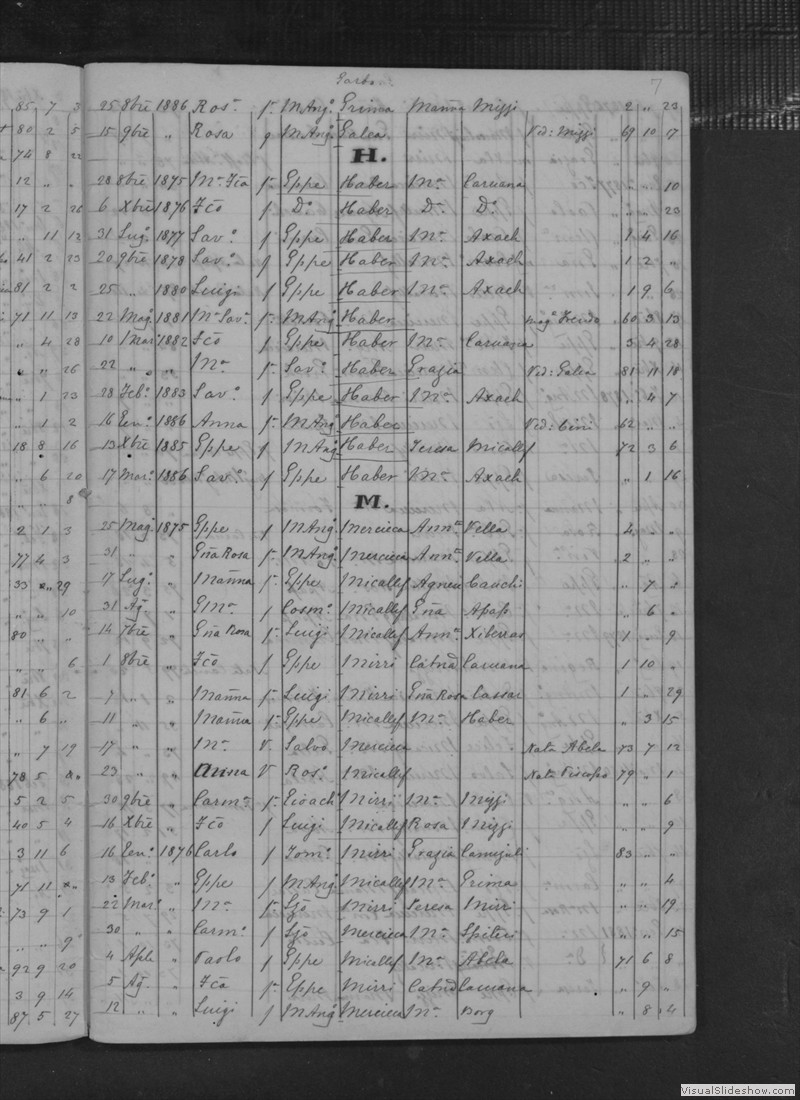 7
85 7 3 25 8bre 1886 Ros.a f.a M Ang.o Grima Manna Mizzi 2 " 23
80 2 5 15 9bre " Rosa f M Ang.o Galea Ved: Mizzi 69 10 17
74 8 22 H.
12 " " 28 8bre 1875 M.a Fca f.a Gppe Haber M.a Caruana " " 10
17 2 26 6 Xbre 1876 Fco f D.o Haber D.a D.o " " 23
" 11 12 31 Lug.o 1877 Sav.o f Gppe Haber M.a Axach 1 4 16
41 2 23 20 9bre 1878 Sav.o f Gppe Haber M.a Axach 1 2 "
81 2 2 25 " 1880 Luigi f Gppe Haber M.a Axach 1 9 6
71 11 13 22 Mag.o 1881 M.a Sav.a f.a M Ang.o Haber mog.e 60 3 13
" 4 28 10 Mar.o 1882 Fco f Gppe Haber M.a Caruana 3 4 28
" " 26 22 " " M.a f.a Sav.o Haber Grazia Ved: Galea 81 11 18
" 1 23 28 Feb.o 1883 Sav.o f Gppe Haber M.a Axach " 4 7
" 1 2 16 Gen.o 1886 Anna f.a M Ang.o Haber Ved: Cini 62 " "
18 8 16 13 Xbre 1885 Gppe f M Ang.o Haber Teresa Micallef 72 3 6
" 6 20 17 Mar.o 1886 Sav.o f Gppe Haber M.a Axach " 1 16
" " 8 M.
2 1 3 25 Mag.o 1875 Gppe f M Ang.o Mercieca Ann.a Vella 4 " "
77 4 3 31 " " Gña Rosa f.a M Ang.o Mercieca Ann.a Vella 2 " "
33 " 29 17 Lug.o " Manna f.a Gppe Micallef Agnese Cauchi " 7 2
" " 10 31 Ag.o " G M.a f Cosm.o Micallef Gña Apap " 6 "
80 " " 14 7bre " Gña Rosa f.a Luigi Micallef Ann.a Xiberras 1 " 9
" " 6 1 8bre " Fco f Gppe Mirri Catnā Caruana 1 10 "
81 6 2 7 " " Manna f.a Luigi Mirri Gña Rosa Cassar 1 " 29
" 6 " 11 " " Manna f.a Gppe Micallef M.a Haber " 3 15
" 7 19 17 " " M.a V. Salvo Mercieca Nata Abela 73 7 12
78 5 23 " " Anna V Ros.o Micallef Nata Piscopo 79 " 1
5 2 5 30 9bre " Carm.a f.a Gioach Mirri M.a Mizzi " " 6
40 5 4 16 Xbre " Fco f Luigi Micallef Rosa Mizzi " " 9
3 11 6 16 Gen.o 1876 Carlo f Tom.o Mirri Grazia Camilleri 83 " "
71 11 13 Feb.o " Gppe f M Ang.o Micallef M.a Grima " " 4
73 9 1 22 Mar.o " M.a f.a Gjo Mirri Teresa Mirri " " 19
" " 9 30 " " Carm.o f Gjo Mercieca M.a Spiteri " " 15
92 9 20 4 Aple " Paolo f Gppe Micallef M.a Abela 71 6 8
3 9 14 5 Ag.o " Fca f.a Gppe Mirri Catnā Caruana " 9 "
87 5 27 12 " " Luigi f M Ang.o Mercieca M.a Borg " 8 4
VisualSlideshow.com